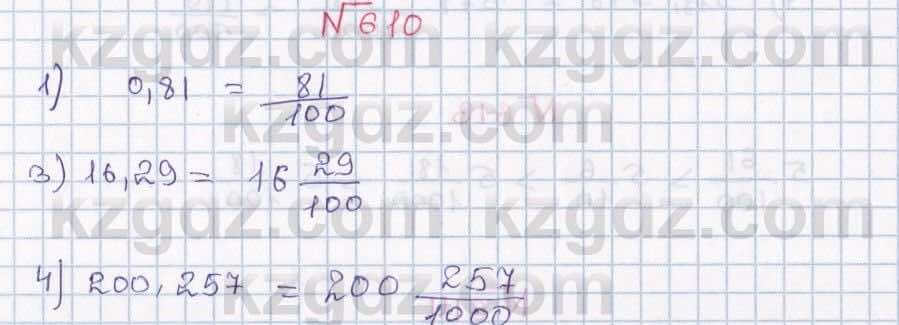 №610
1) 0,81 = 81/100
3) 16,29 = 16 29/100
4) 200,257 = 200 257/1000
kzgdz.com kzgdz.com
kzgdz.com
kzgdz.com kzgdz.com
kzgdz.com